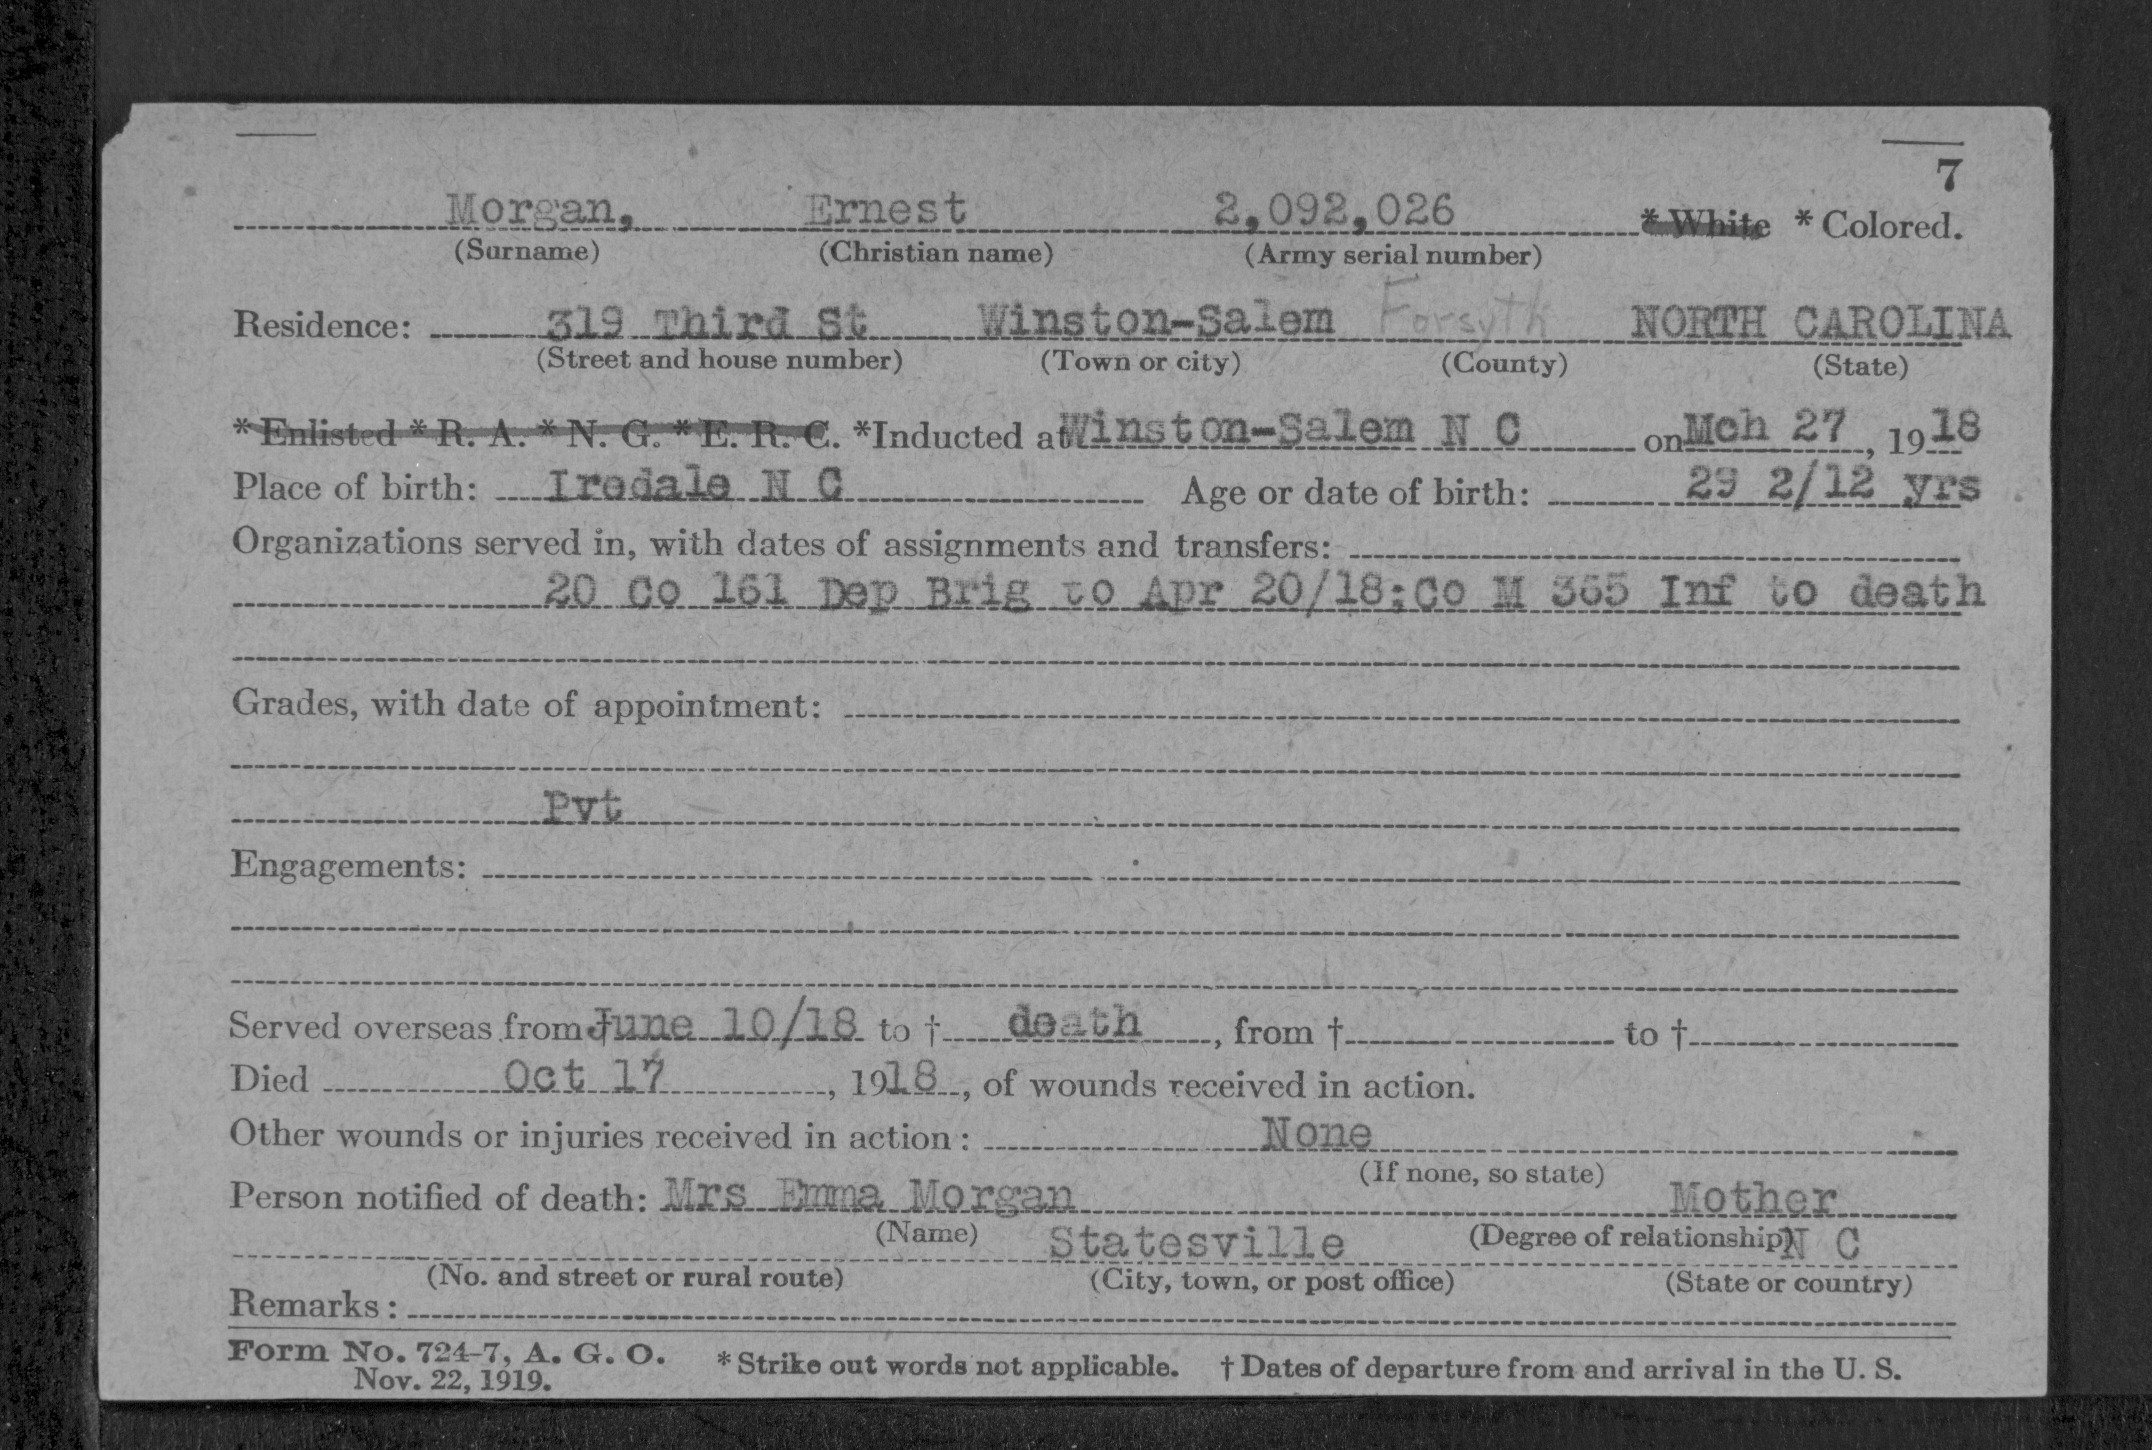 7
Morgan, Ernest 2,092,026 * White * Colored.
(Surname) (Christian name) (Army serial number)
Residence: 319 Third St Winston-Salem Forsyth NORTH CAROLINA
(Street and house number) (Town or city) (County) (State)
* Enlisted * R. A. * N. G. * E. R. C. *Inducted at Winston-Salem N C on Mch 27, 1918
Place of birth: Iredale N C Age or date of birth: 29 2/12 yrs
Organizations served in, with dates of assignments and transfers:
20 Co 161 Dep Brig to Apr 20/18;Co M 365 Inf to death
Grades, with date of appointment:
Pvt
Engagements:
Served overseas from † June 10/18 to † death, from † to †
Died Oct 17, 1918, of wounds received in action.
Other wounds or injuries received in action: None
(If none, so state)
Person notified of death: Mrs Emma Morgan Mother
(Name) (Degree of relationship)
Statesville N C
(No. and street or rural route) (City, town, or post office) (State or country)
Remarks:
Form No. 724-7, A. G. O. * Strike out words not applicable. † Dates of departure from and arrival in the U. S.
Nov. 22, 1919.